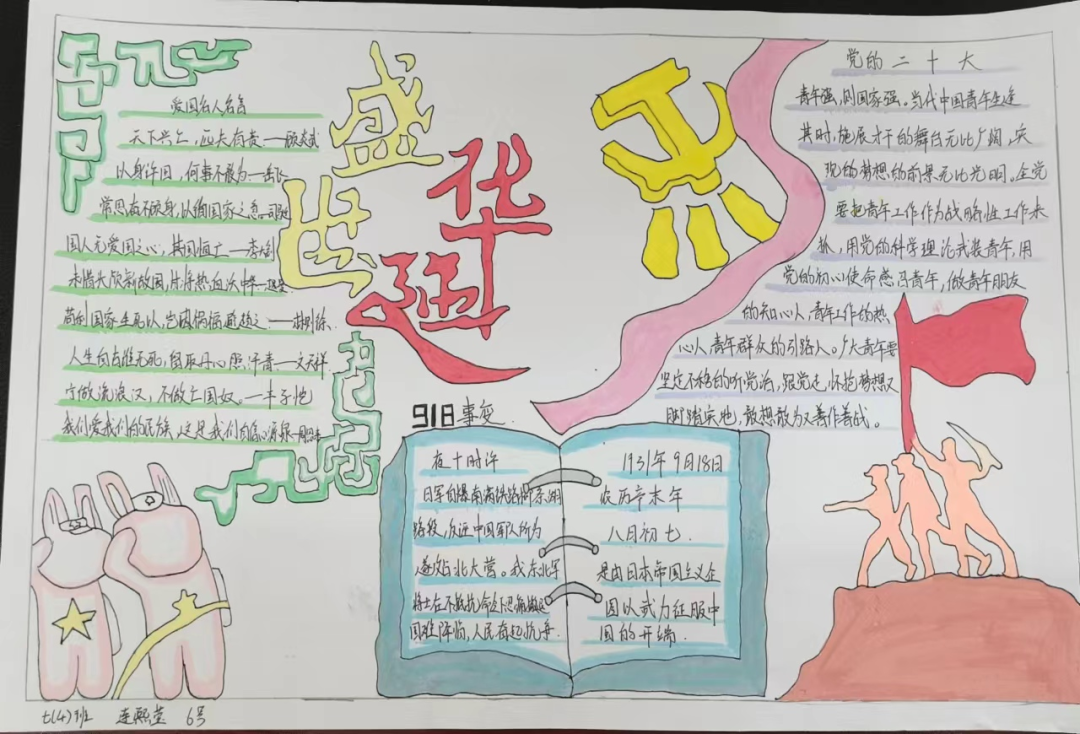 盛世华诞
爱国名人名言
天下兴亡，匹夫有责——顾炎武
以身许国，何事不敢为——岳飞
常思奋不顾身，以徇国家之急——司马迁
国人无爱国之心，其国恒亡——李大钊
未惜头颅新故国，甘将热血沃中华——
苟利国家生死以，岂因祸福避趋之——林则徐
人生自古谁无死，留取丹心照汗青——文天祥
宁做流浪汉，不做亡国奴。——丰子恺
我们爱我们的民族，这是我们自信心源泉—周恩来
党的二十大
青年强，则国家强。当代中国青年生逢
其时，施展才干的舞台无比广阔，实
现的梦想的前景无比光明。全党
要把青年工作作为战略性工作来
抓，用党的科学理论武装青年，用
党的初心使命感召青年，做青年朋友
的知心人，青年工作的热
心人，青年群众的引路人。广大青年要
坚定不移的听党话，跟党走，怀抱梦想又
脚踏实地，敢想敢为又善作善成。
918事变
夜十时许
日军自爆南满铁路柳条湖
路段，反诬中国军人所为
遂攻占北大营。我东北军
将士在不抵抗命令下忍痛撤退
国难降临，人民奋起抗争。
1931年9月18日
农历辛未年
八月初七
是由日本帝国主义企
图以武力征服中
国的开端
七(4)班 连熙莹 6号